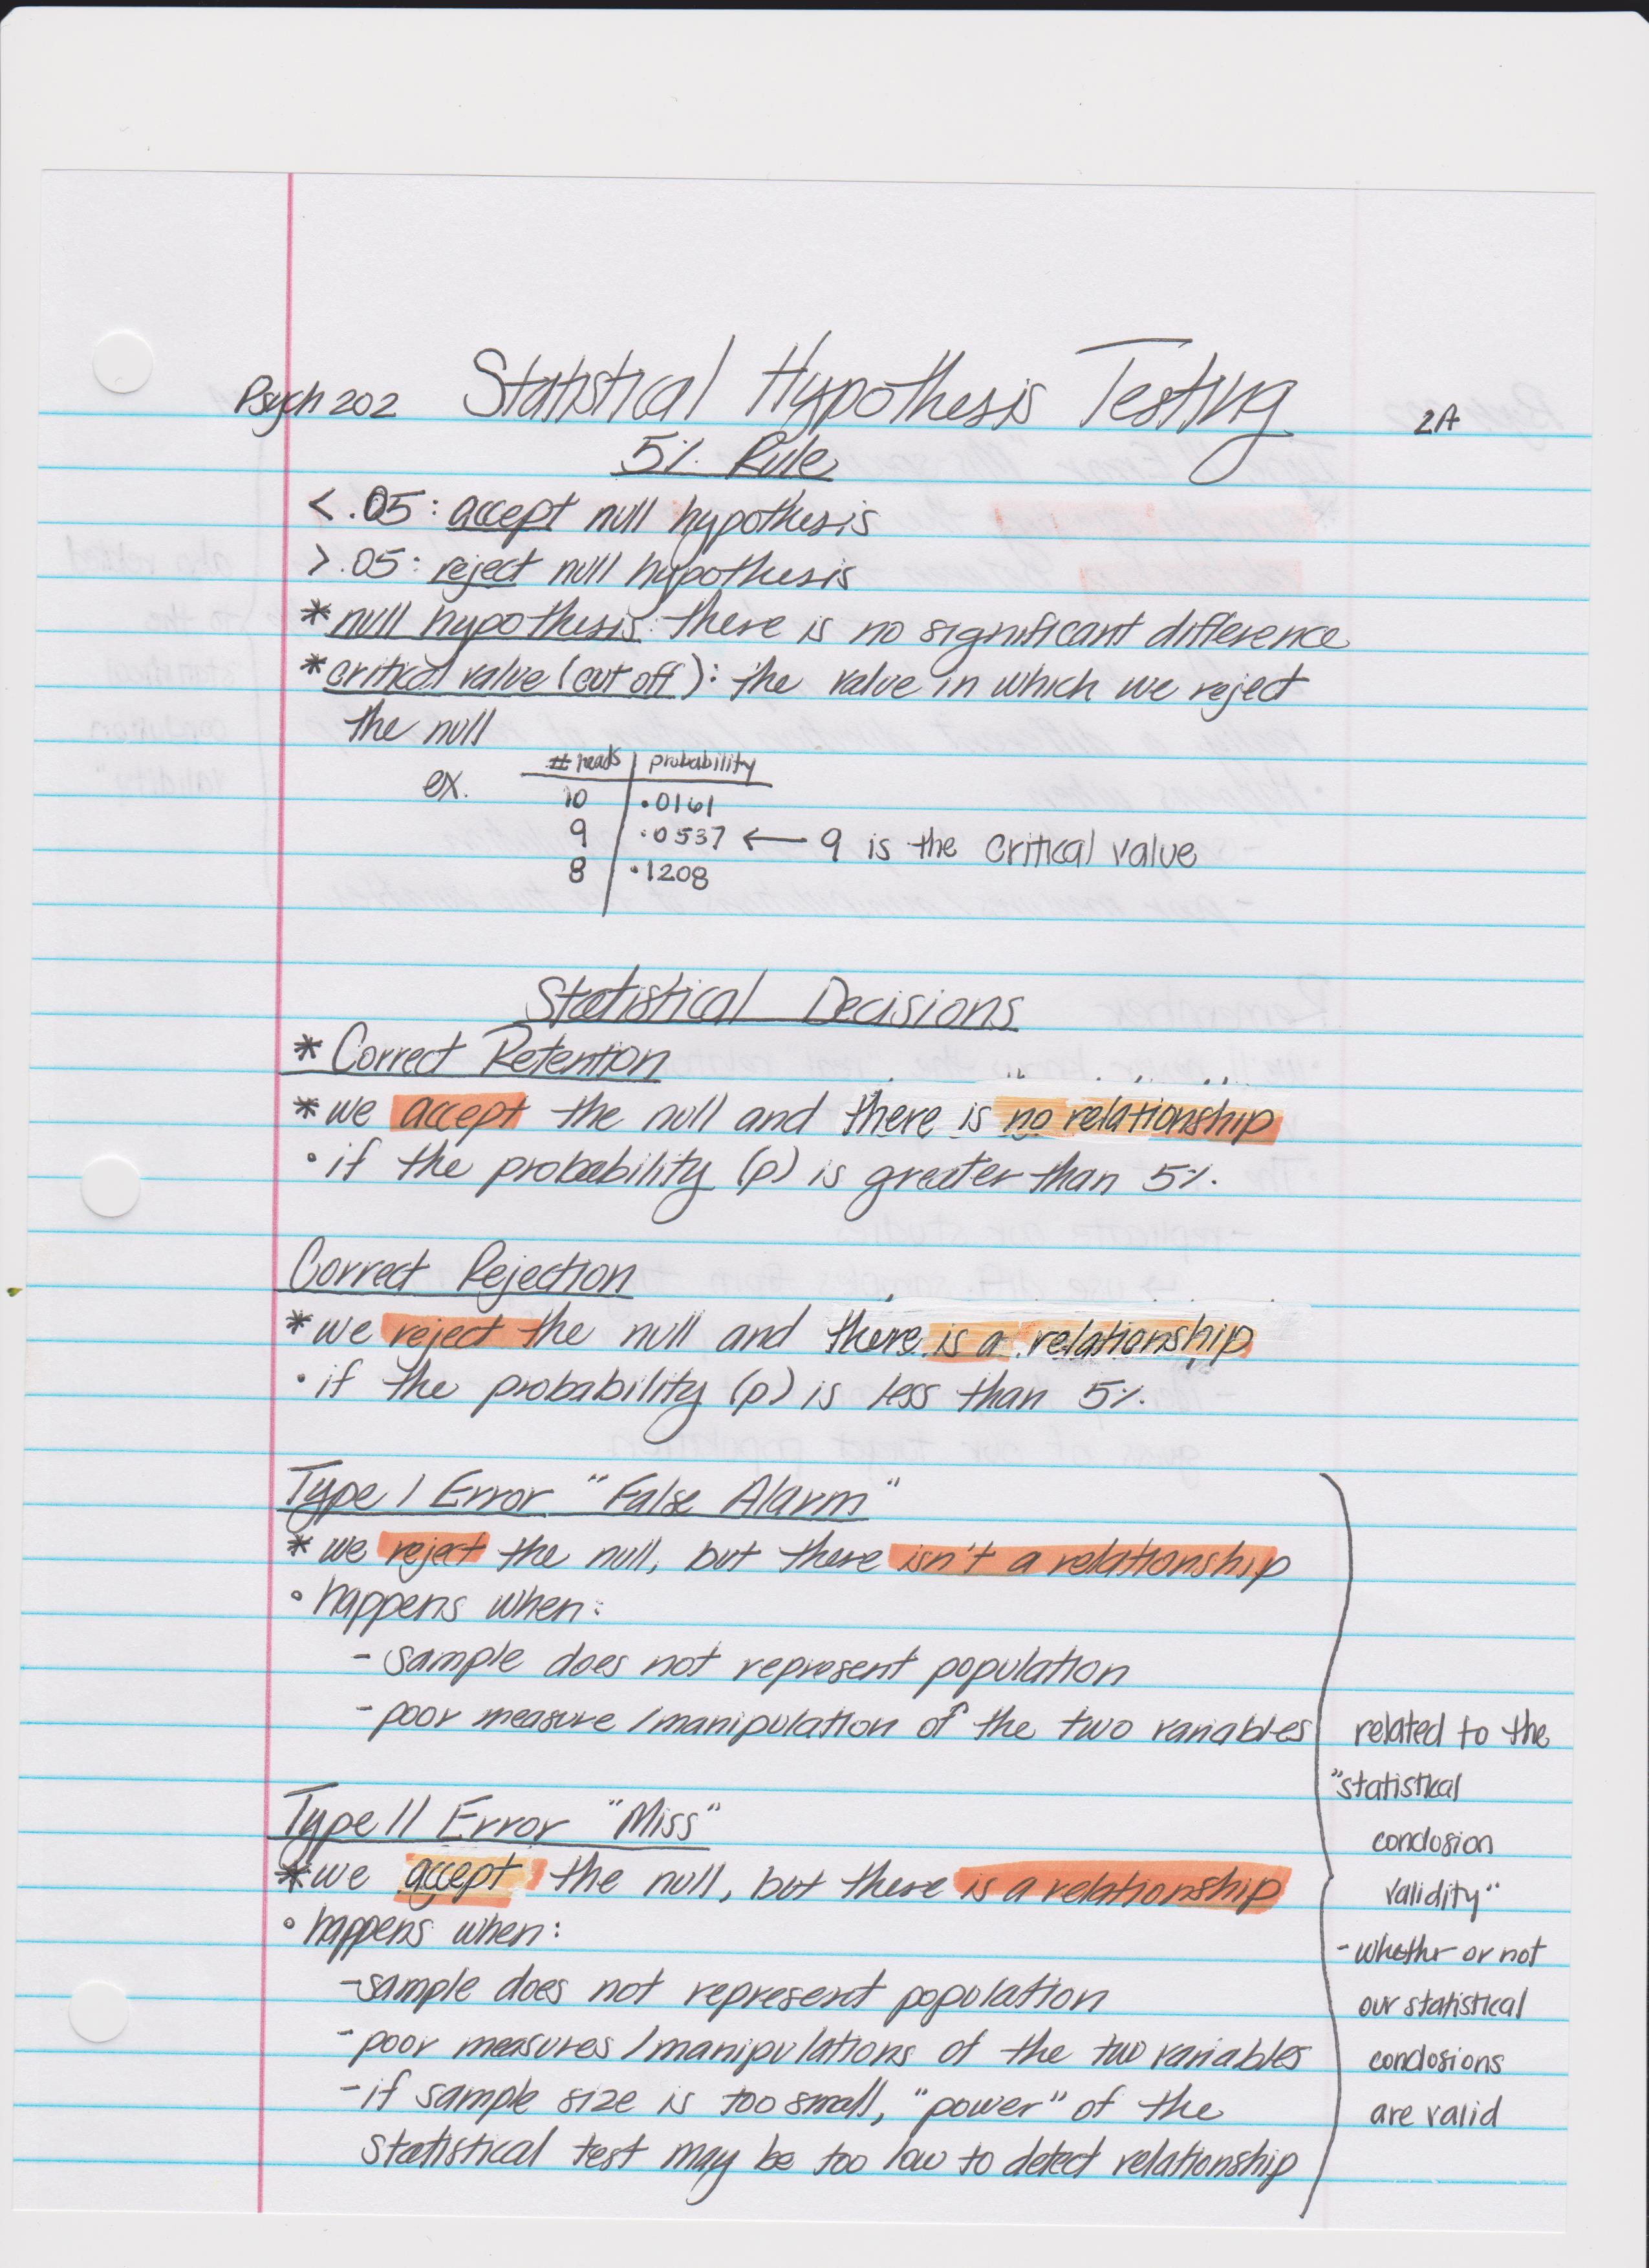 Psych 202 Statistical Hypothesis Testing 2A
5% Rule
< .05: accept null hypothesis
> .05: reject null hypothesis
* null hypothesis: there is no significant difference
* critical value (cut off): the value in which we reject
the null
ex. # heads | probability
10 | .0161
9 | .0537 ← 9 is the critical value
8 | .1208
Statistical Decisions
* Correct Retention
* we accept the null and there is no relationship
• if the probability (p) is greater than 5%.
Correct Rejection
* we reject the null and there is a relationship
• if the probability (p) is less than 5%.
Type I Error "False Alarm"
* we reject the null, but there isn't a relationship
• happens when:
- sample does not represent population
- poor measure/manipulation of the two variables
Type II Error "Miss"
* we accept the null, but there is a relationship
• happens when:
- sample does not represent population
- poor measures/manipulations of the two variables
- if sample size is too small, "power" of the
statistical test may be too low to detect relationship
related to the
"statistical
conclusion
validity"
- whether or not
our statistical
conclusions
are valid